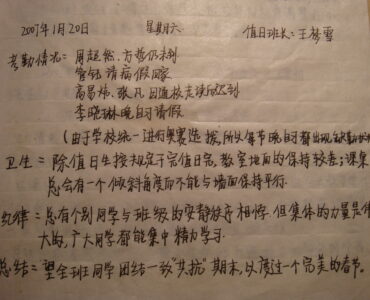 2007年1月20日 星期六 值日班长:王梦雪
考勤情况: 周超然、方哲仍未到
管钰请病假回家
高易炜、张凡因值校走读而迟到
李晓琳晚自时请假
(由于学校统一进行奥赛选拔,所以每节晚自时都出现
卫生= 除值日生按规定于完值日完,教室地面的保持较差;课桌
总会有一个倾斜角度而不能与墙面保持平行.
纪律= 总有个别同学与班级的安静秩序相悖.但集体的力量是伟
大的,广大同学都能集中精力学习.
总结= 望全班同学团结一致“共抗”期末,以度过一个完美的春节。